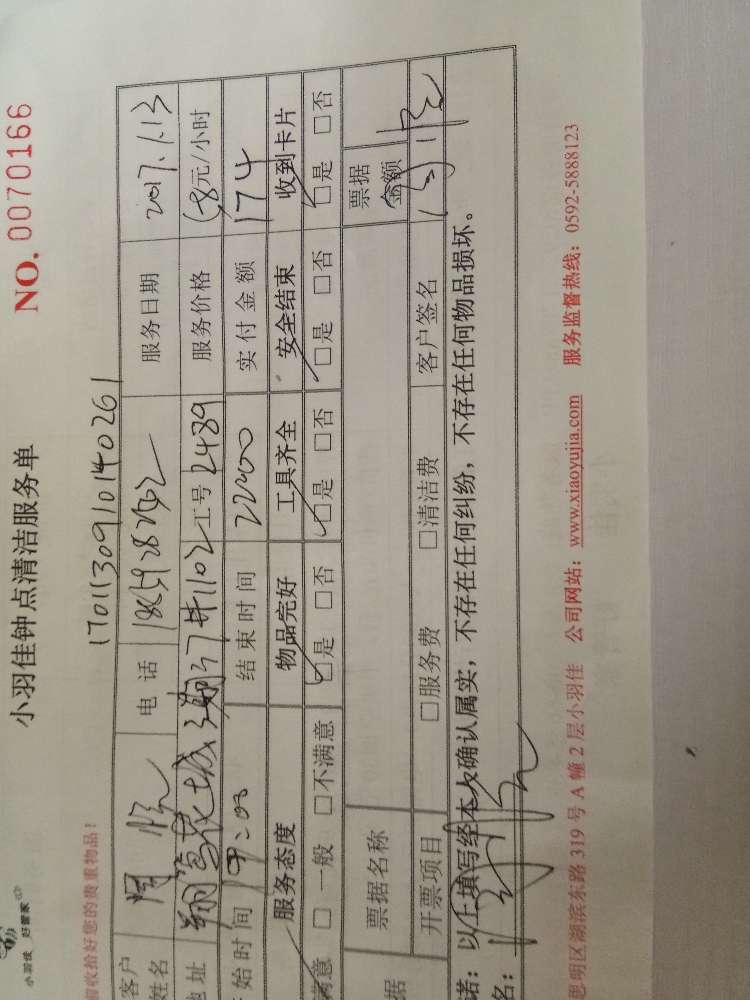 小羽佳 好管家
小羽佳钟点清洁服务单
NO. 0070166
收拾好您的贵重物品!
170113091014 0261
客户姓名 周 电话 服务日期 2017.1.13
地址 翔鹭花城 1102 工号 2489 服务价格 58元/小时
始时间 19:00 结束时间 22:00 实付金额 174
服务态度 物品完好 工具齐全 安全结束 收到卡片
满意 □一般 □不满意 □是 □否 □是 □否 □是 □否 □是 □否
据 票据名称 票据金额
开票项目 □服务费 □清洁费 客户签名
诺:以上填写经本人确认属实,不存在任何纠纷,不存在任何物品损坏。
名:
思明区湖滨东路 319 号 A 幢 2 层小羽佳 公司网站:www.xiaoyujia.com 服务监督热线:0592-5888123